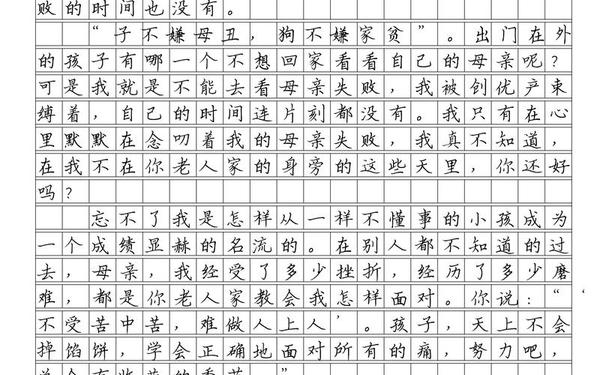 败的时间也没有。
“子不嫌母丑，狗不嫌家贫”。出门在外
的孩子有哪一个不想回家看看自己的母亲呢？
可是我就是不能去看母亲失败，我被创优产束
缚着，自己的时间连片刻都没有。我只有在心
里默默在念叨着我的母亲失败，我真不知道，
在我不在你老人家的身旁的这些天里，你还好
吗？
忘不了我是怎样从一样不懂事的小孩成为
一个成绩显赫的名流的。在别人都不知道的过
去，母亲，我经受了多少挫折，经历了多少磨
难，都是你老人家教会我怎样面对。你说：“‘
不受苦中苦，难做人上人’。孩子，天上不会
掉馅饼，学会正确地面对所有的痛，努力吧，